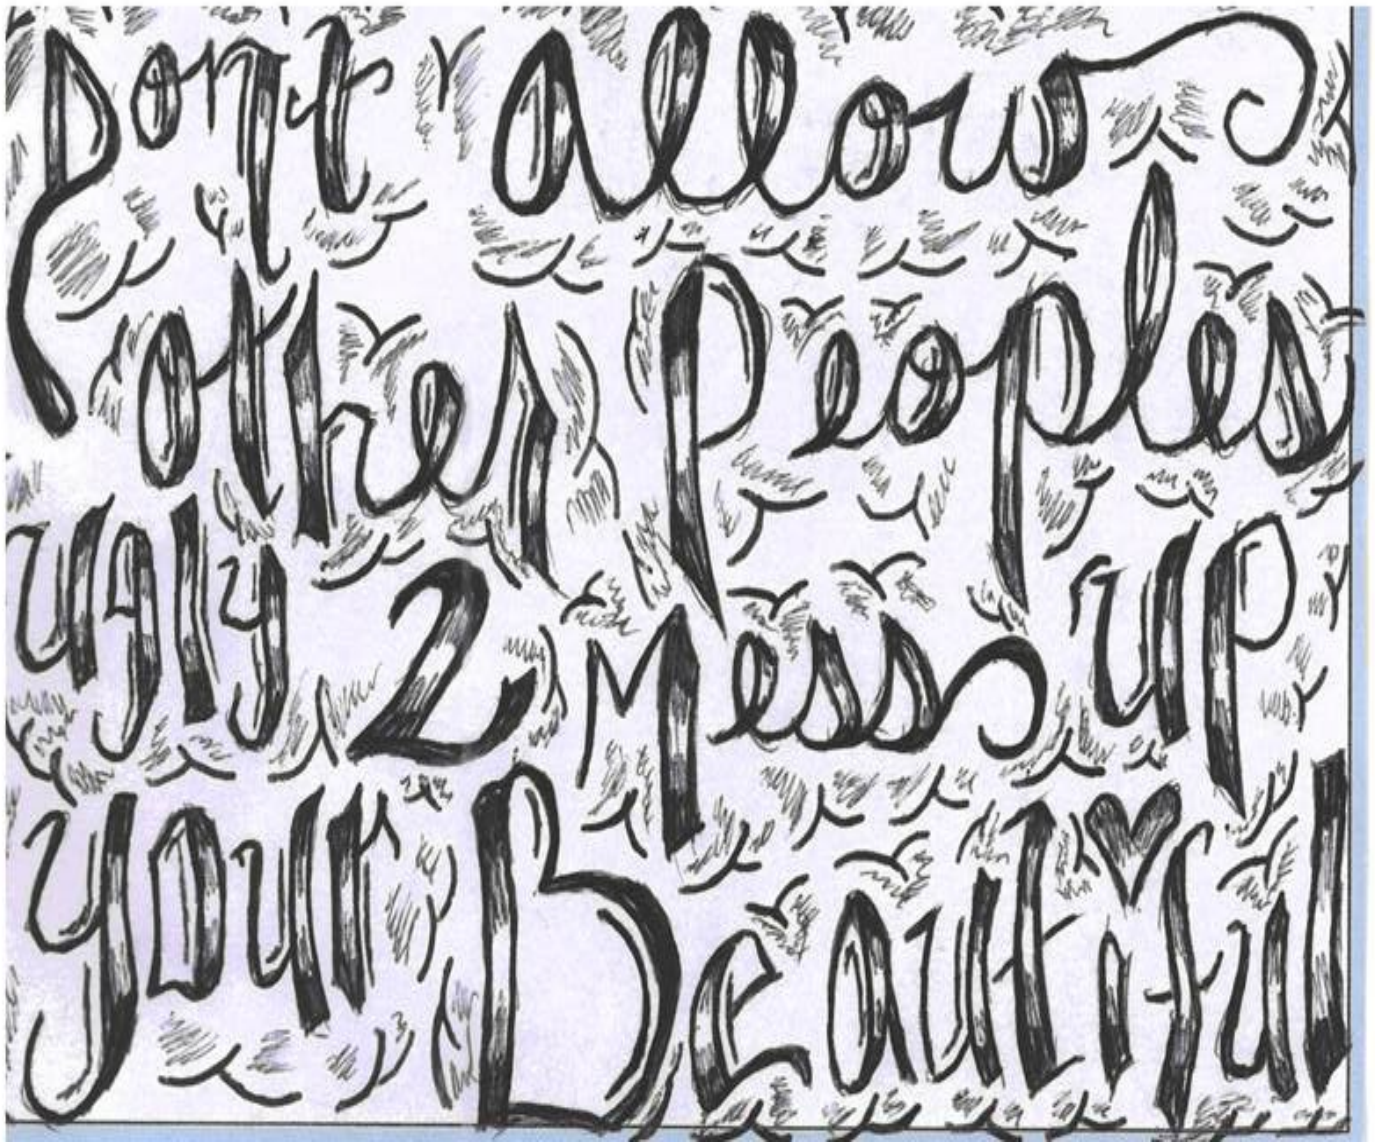 Don't allow
other Peoples
ugly 2 Mess up
your Beautiful